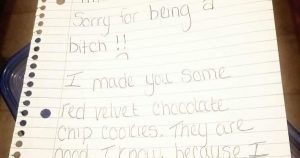 Sorry for being a
bitch!!
I made you some
red velvet chocolate
chip cookies. They are
good I know because I